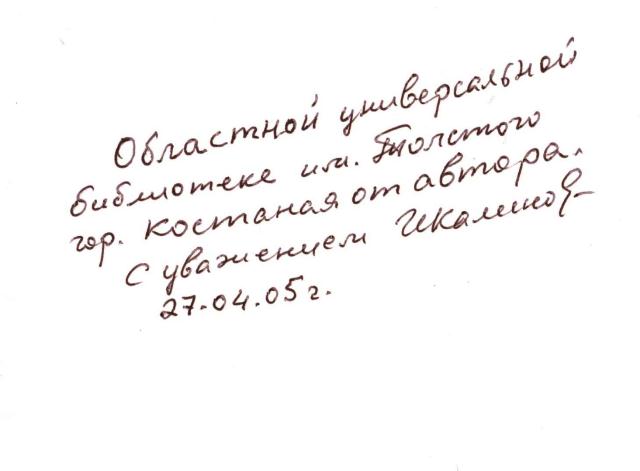 Областной универсальной
библиотеке им. Толстого
гор. Костаная от автора.
С уважением
27.04.05 г.